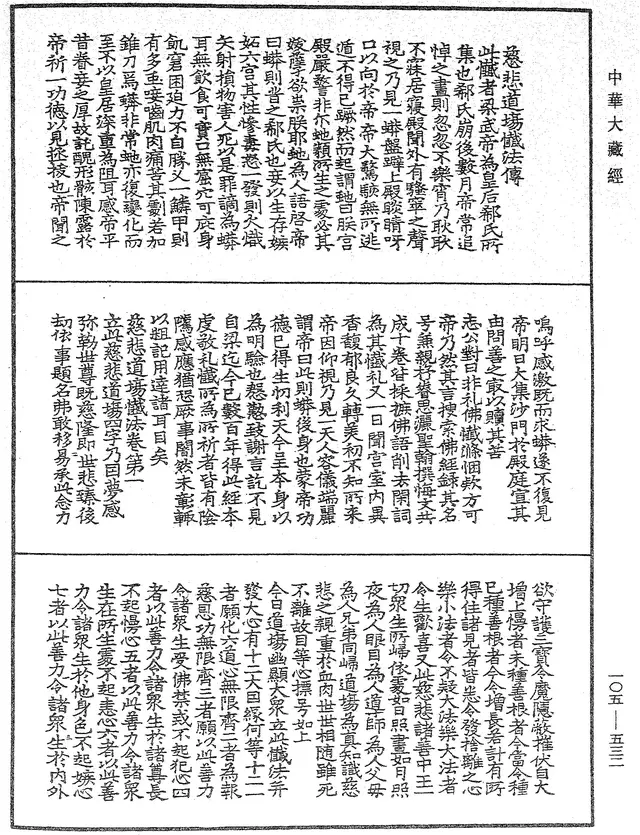 中華大藏經
慈悲道場懺法傳
此懺者梁武帝為皇后郗氏所
集也郗氏崩後數月帝常追
悼之晝則忽忽不樂宵乃耿耿
不寐居寢殿聞外有騷窣之聲
視之乃見一蟒盤躃上殿睒睛呀
口以向於帝帝大驚駭無所逃
遁不得已蹶然而起謂虵曰朕宮
殿嚴警非尒虵類所生之處必其
妖孽欲祟朕耶虵為人語啓帝
曰蟒則昔之郗氏也妾以生存嫉
妬六宮其性慘毒怒一發則火熾
矢射損物害人死以是罪謫為蟒
耳無飲食可實口無窟穴可庇身
飢窘困迫力不自勝又一鱗甲則
有多虫唼嚙肌肉痛苦其劇若加
錐刀焉蟒非常虵亦復變化而
至不以皇居深重為阻耳感帝平
昔眷妾之厚故託醜形骸陳露於
帝祈一功德以見拯拔也帝聞之
嗚呼感激既而求蟒遂不復見
帝明日大集沙門於殿庭宣其
由問善之冣以贖其苦
志公對曰非礼佛懺滌悃款方可
帝乃然其言搜索佛經録其名
号兼親抒眷思灑聖翰撰悔文共
成十卷皆採摭佛語削去閑詞
為其懺礼又一日聞宮室內異
香馥郁良久轉美初不知所来
帝因仰視乃見一天人容儀端麗
謂帝曰此則蟒後身也蒙帝功
德已得生忉利天今呈本身以
為明驗也慇懃致謝言訖不見
自梁迄今已數百年得此經本
虔敬礼懺所為所祈者皆有陰
隲感應猶恐厥事闇然未彰輒
以粗記用達諸耳目矣
慈悲道場懺法卷第一
立此慈悲道場四字乃因夢感
弥勒世尊既慈隆即世悲臻後
劫依事題名弗敢移易承此念力
欲守護三寶令魔隱蔽摧伏自大
增上慢者未種善根者今當令種
已種善根者今令增長若計有所
得住諸見者皆悉令發捨離之心
樂小法者令不疑大法樂大法者
令生歡喜又此慈悲諸善中王一
切衆生所歸依處如日照晝如月照
夜為人眼目為人導師為人父母
為人兄弟同歸道場為真知識慈
悲之親重於血肉世世相隨雖死
不離故目等心標号如上
今日道場幽顯大衆立此懺法并
發大心有十二大因緣何等十二一
者願化六道心無限齊二者為報
慈恩功無限齊三者願以此善力
令諸衆生受佛禁戒不起犯心四
者以此善力令諸衆生於諸尊長
不起慢心五者以此善力令諸衆
生在所生處不起恚心六者以此善
力令諸衆生於他身色不起嫉心
七者以此善力令諸衆生於內外
一〇五—五三二